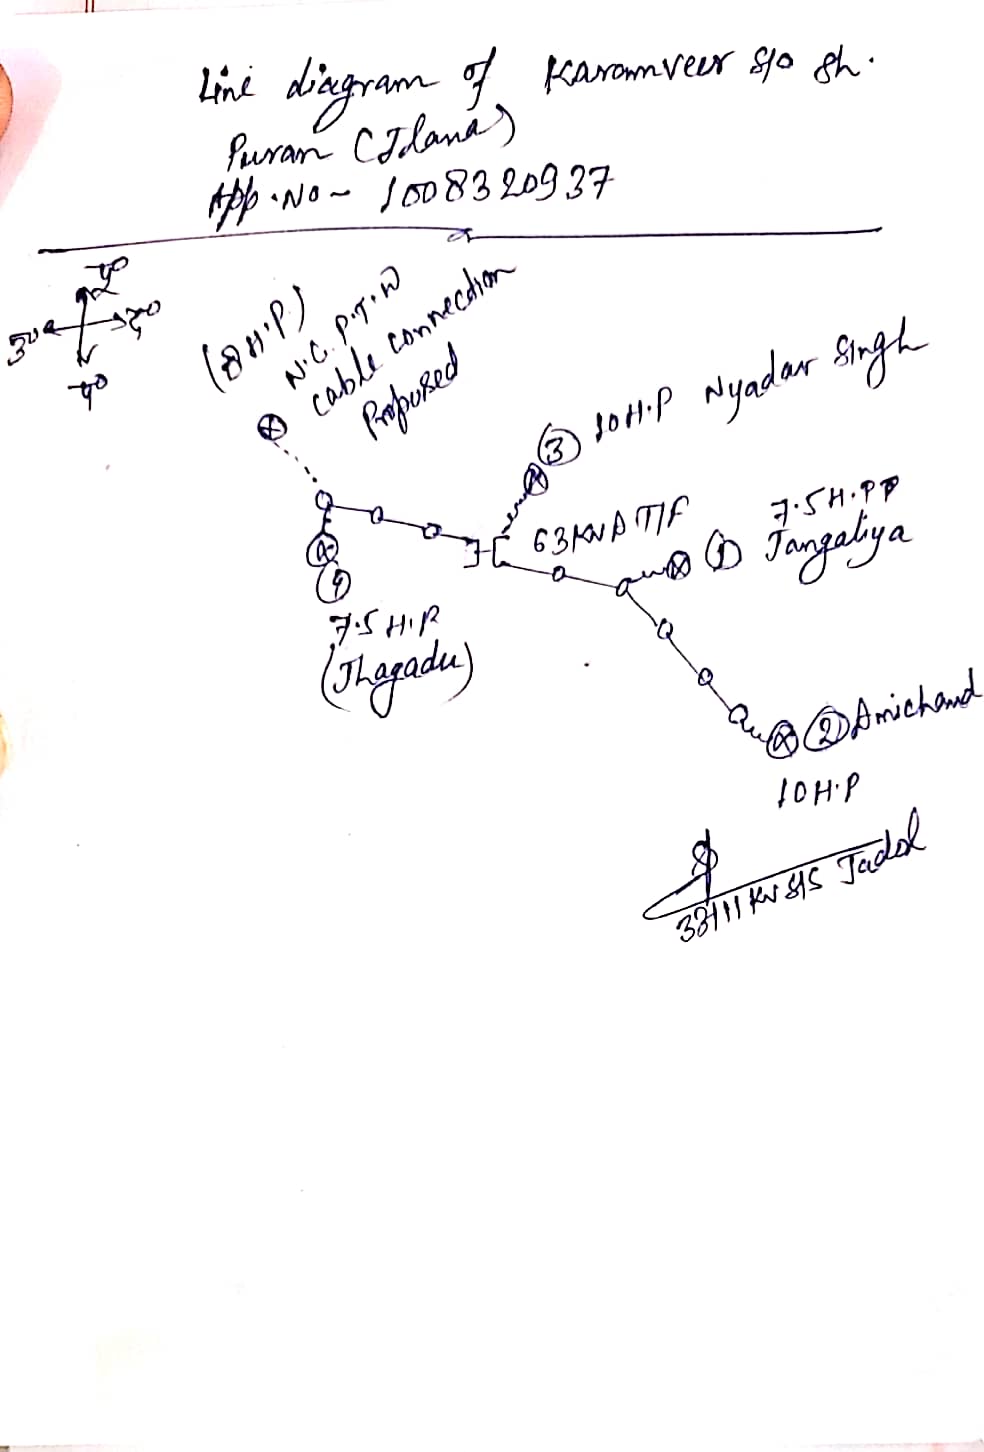 Line diagram of Karamveer S/o Sh.
Puran (Jlana)
App. No ~ 1008320937
उ०
पू०
द०
(8 H.P)
N.C. P.T.W
cable connection
Proposed
3
10 H.P Nyadar Singh
63 KVA T/F
1
7.5 H.PP
Jangaliya
4
7.5 H.P
(Jhagadu)
2
Amichand
10 H.P
33/11 KV S/S Jadol